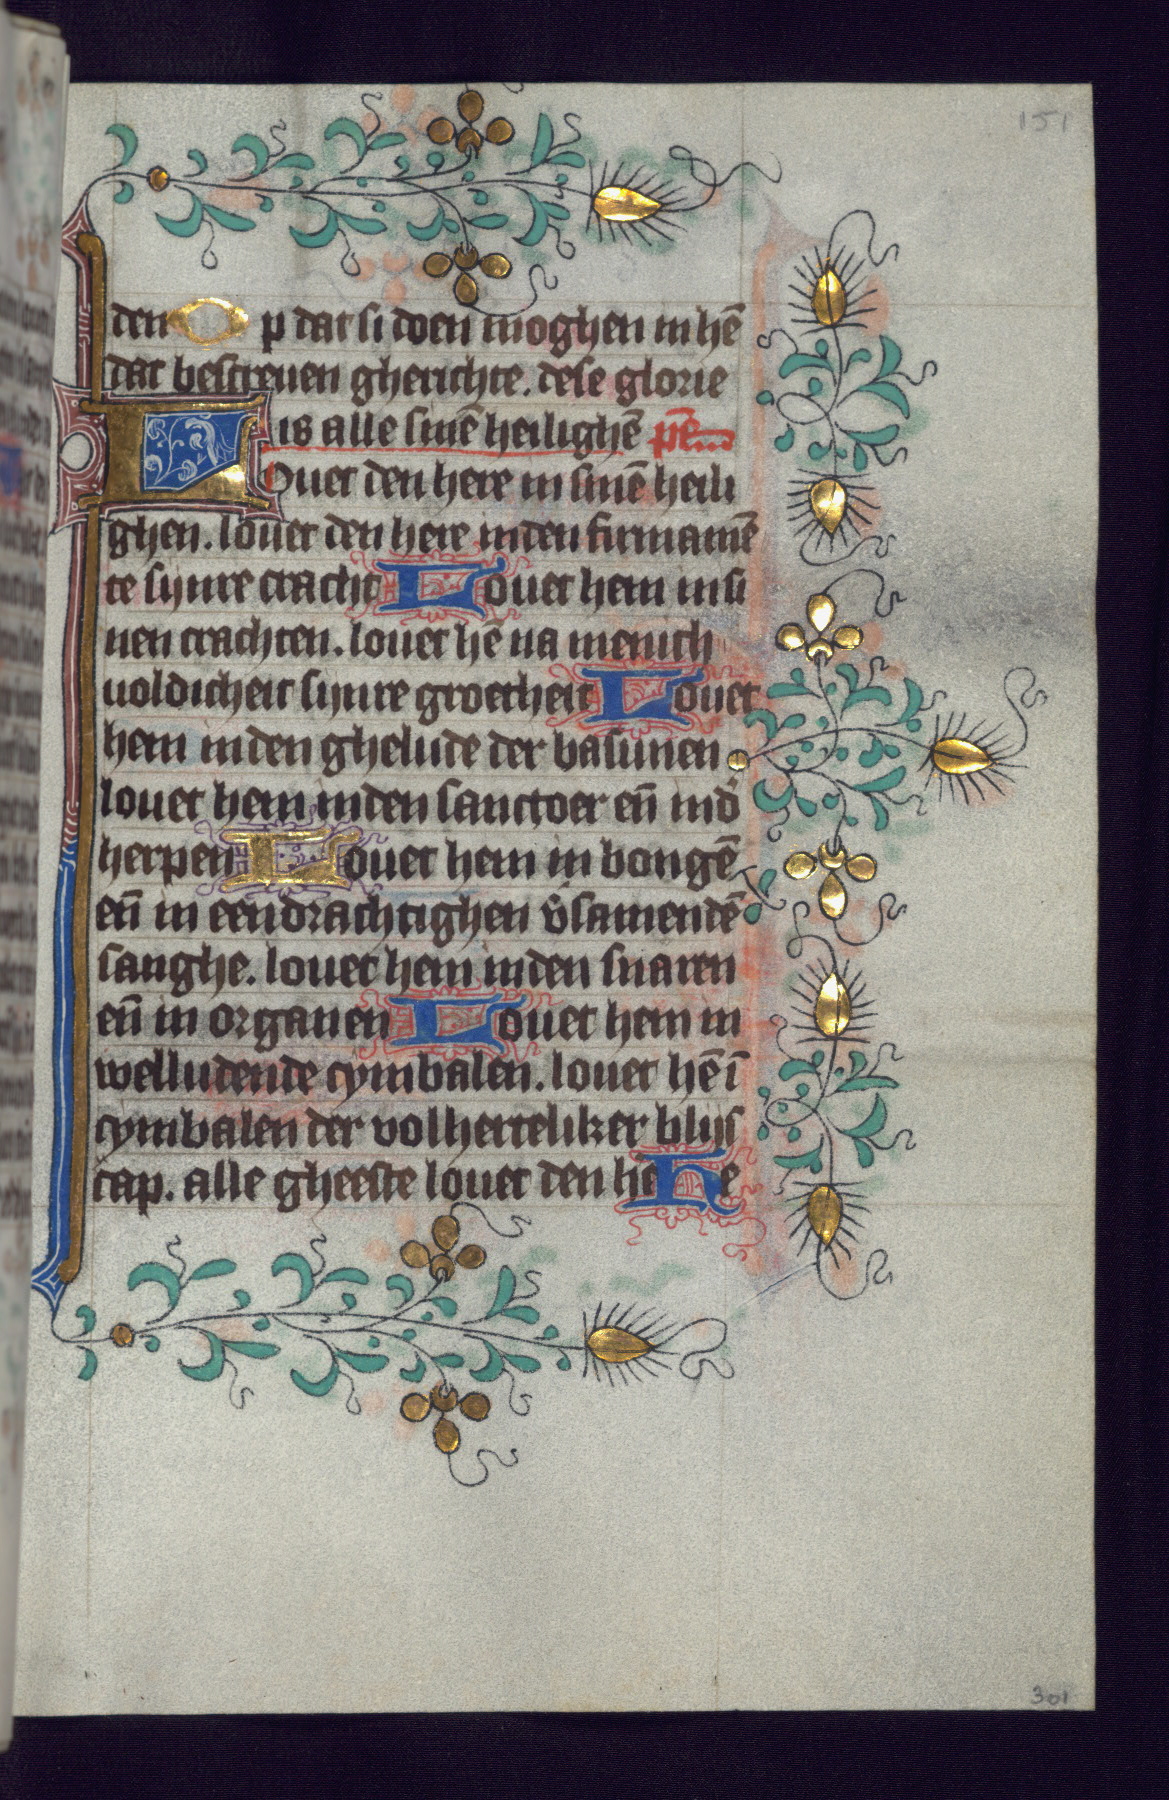 151
den Op dat si doen moghen in hē
dat bescreuen gherichte. dese glorie
is alle sinē heilighē
Louet den here in sinē heili
ghen. louet den here inden firmamē
te sijnre cracht Louet hem in si
nen crachten. louet hē na menich
uoldicheit sijnre groetheit Louet
hem inden ghelude der basunen
louet hem inden sanctoer eñ ind'
herpen Louet hem in bongē
eñ in eendrachtighen v̄samendē
sanghe. louet hem inden snaren
eñ in organen Louet hem in
welludende cymbalen. louet hē ī
cymbalen der volherteliker blijs
cap. alle gheeste louet den he re
301